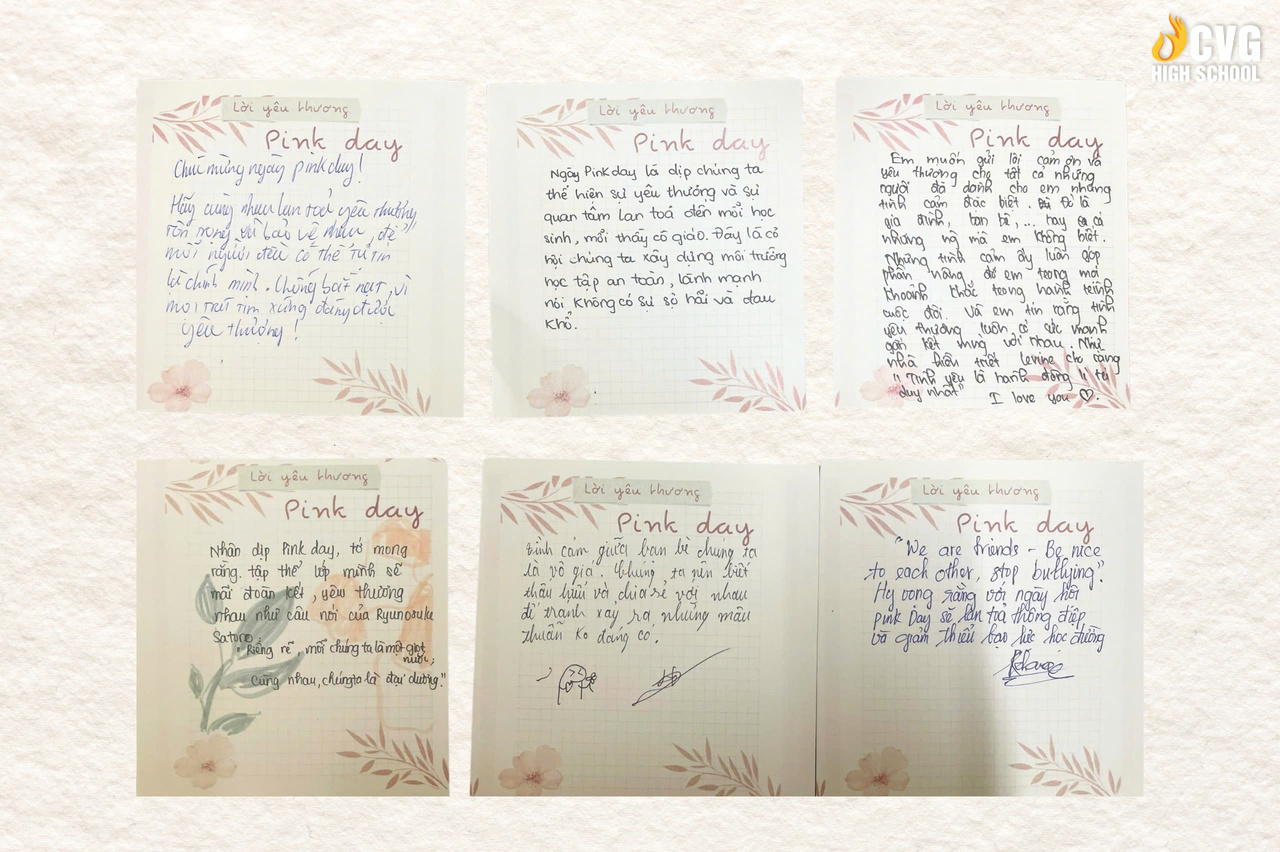 CVG
HIGH SCHOOL
Lời yêu thương
Pink day
Chúc mừng ngày pink day!
Hãy cùng nhau lan toả yêu thương,
tôn trọng và bảo vệ nhau, để
mỗi người đều có thể tự tin
là chính mình. Chống bắt nạt, vì
mọi trái tim xứng đáng được
yêu thương!
Lời yêu thương
Pink day
Ngày Pink day là dịp chúng ta
thể hiện sự yêu thương và sự
quan tâm lan toả đến mỗi học
sinh, mỗi thầy cô giáo. Đây là cơ
hội chúng ta xây dựng môi trường
học tập an toàn, lành mạnh
nói không có sự sợ hãi và đau
khổ.
Lời yêu thương
Pink day
Em muốn gửi lời cảm ơn và
yêu thương cho tất cả những
người đã dành cho em những
tình cảm đặc biệt. Đó là
gia đình, bạn bè,... hay cả
những ng mà em không biết.
Những tình cảm ấy luôn góp
phần nâng đỡ em trong mọi
khoảnh khắc trong hành trình
cuộc đời. Và em tin rằng tình
yêu thương luôn có sức mạnh
gắn kết mng với nhau. Như
nhà triết Levine cho rằng
"Tình yêu là hành động
duy nhất" I love you
Lời yêu thương
Pink day
Nhân dịp Pink day, tớ mong
rằng tập thể lớp mình sẽ
mãi đoàn kết, yêu thương
nhau như câu nói của Ryunosuke
Satoro:
"Riêng rẽ, mỗi chúng ta là một giọt
nước;
Cùng nhau, chúng ta là đại dương."
Lời yêu thương
Pink day
Tình cảm giữa bạn bè chúng ta
là vô giá. Chúng ta nên biết
thấu hiểu và chia sẻ với nhau
để tránh xảy ra những mâu
thuẫn ko đáng có.
Lời yêu thương
Pink day
"We are friends - Be nice
to each other, stop bullying".
Hy vọng rằng với ngày hội
Pink Day sẽ lan toả thông điệp
và giảm thiểu bạo lực học đường